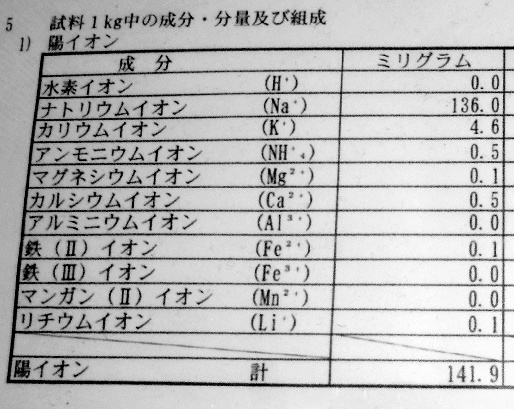 5 試料1kg中の成分・分量及び組成
1) 陽イオン
成 分 ミリグラム
水素イオン (H⁺) 0.0
ナトリウムイオン (Na⁺) 136.0
カリウムイオン (K⁺) 4.6
アンモニウムイオン (NH⁺₄) 0.5
マグネシウムイオン (Mg²⁺) 0.1
カルシウムイオン (Ca²⁺) 0.5
アルミニウムイオン (Al³⁺) 0.0
鉄(Ⅱ)イオン (Fe²⁺) 0.1
鉄(Ⅲ)イオン (Fe³⁺) 0.0
マンガン(Ⅱ)イオン (Mn²⁺) 0.0
リチウムイオン (Li⁺) 0.1
陽イオン 計 141.9